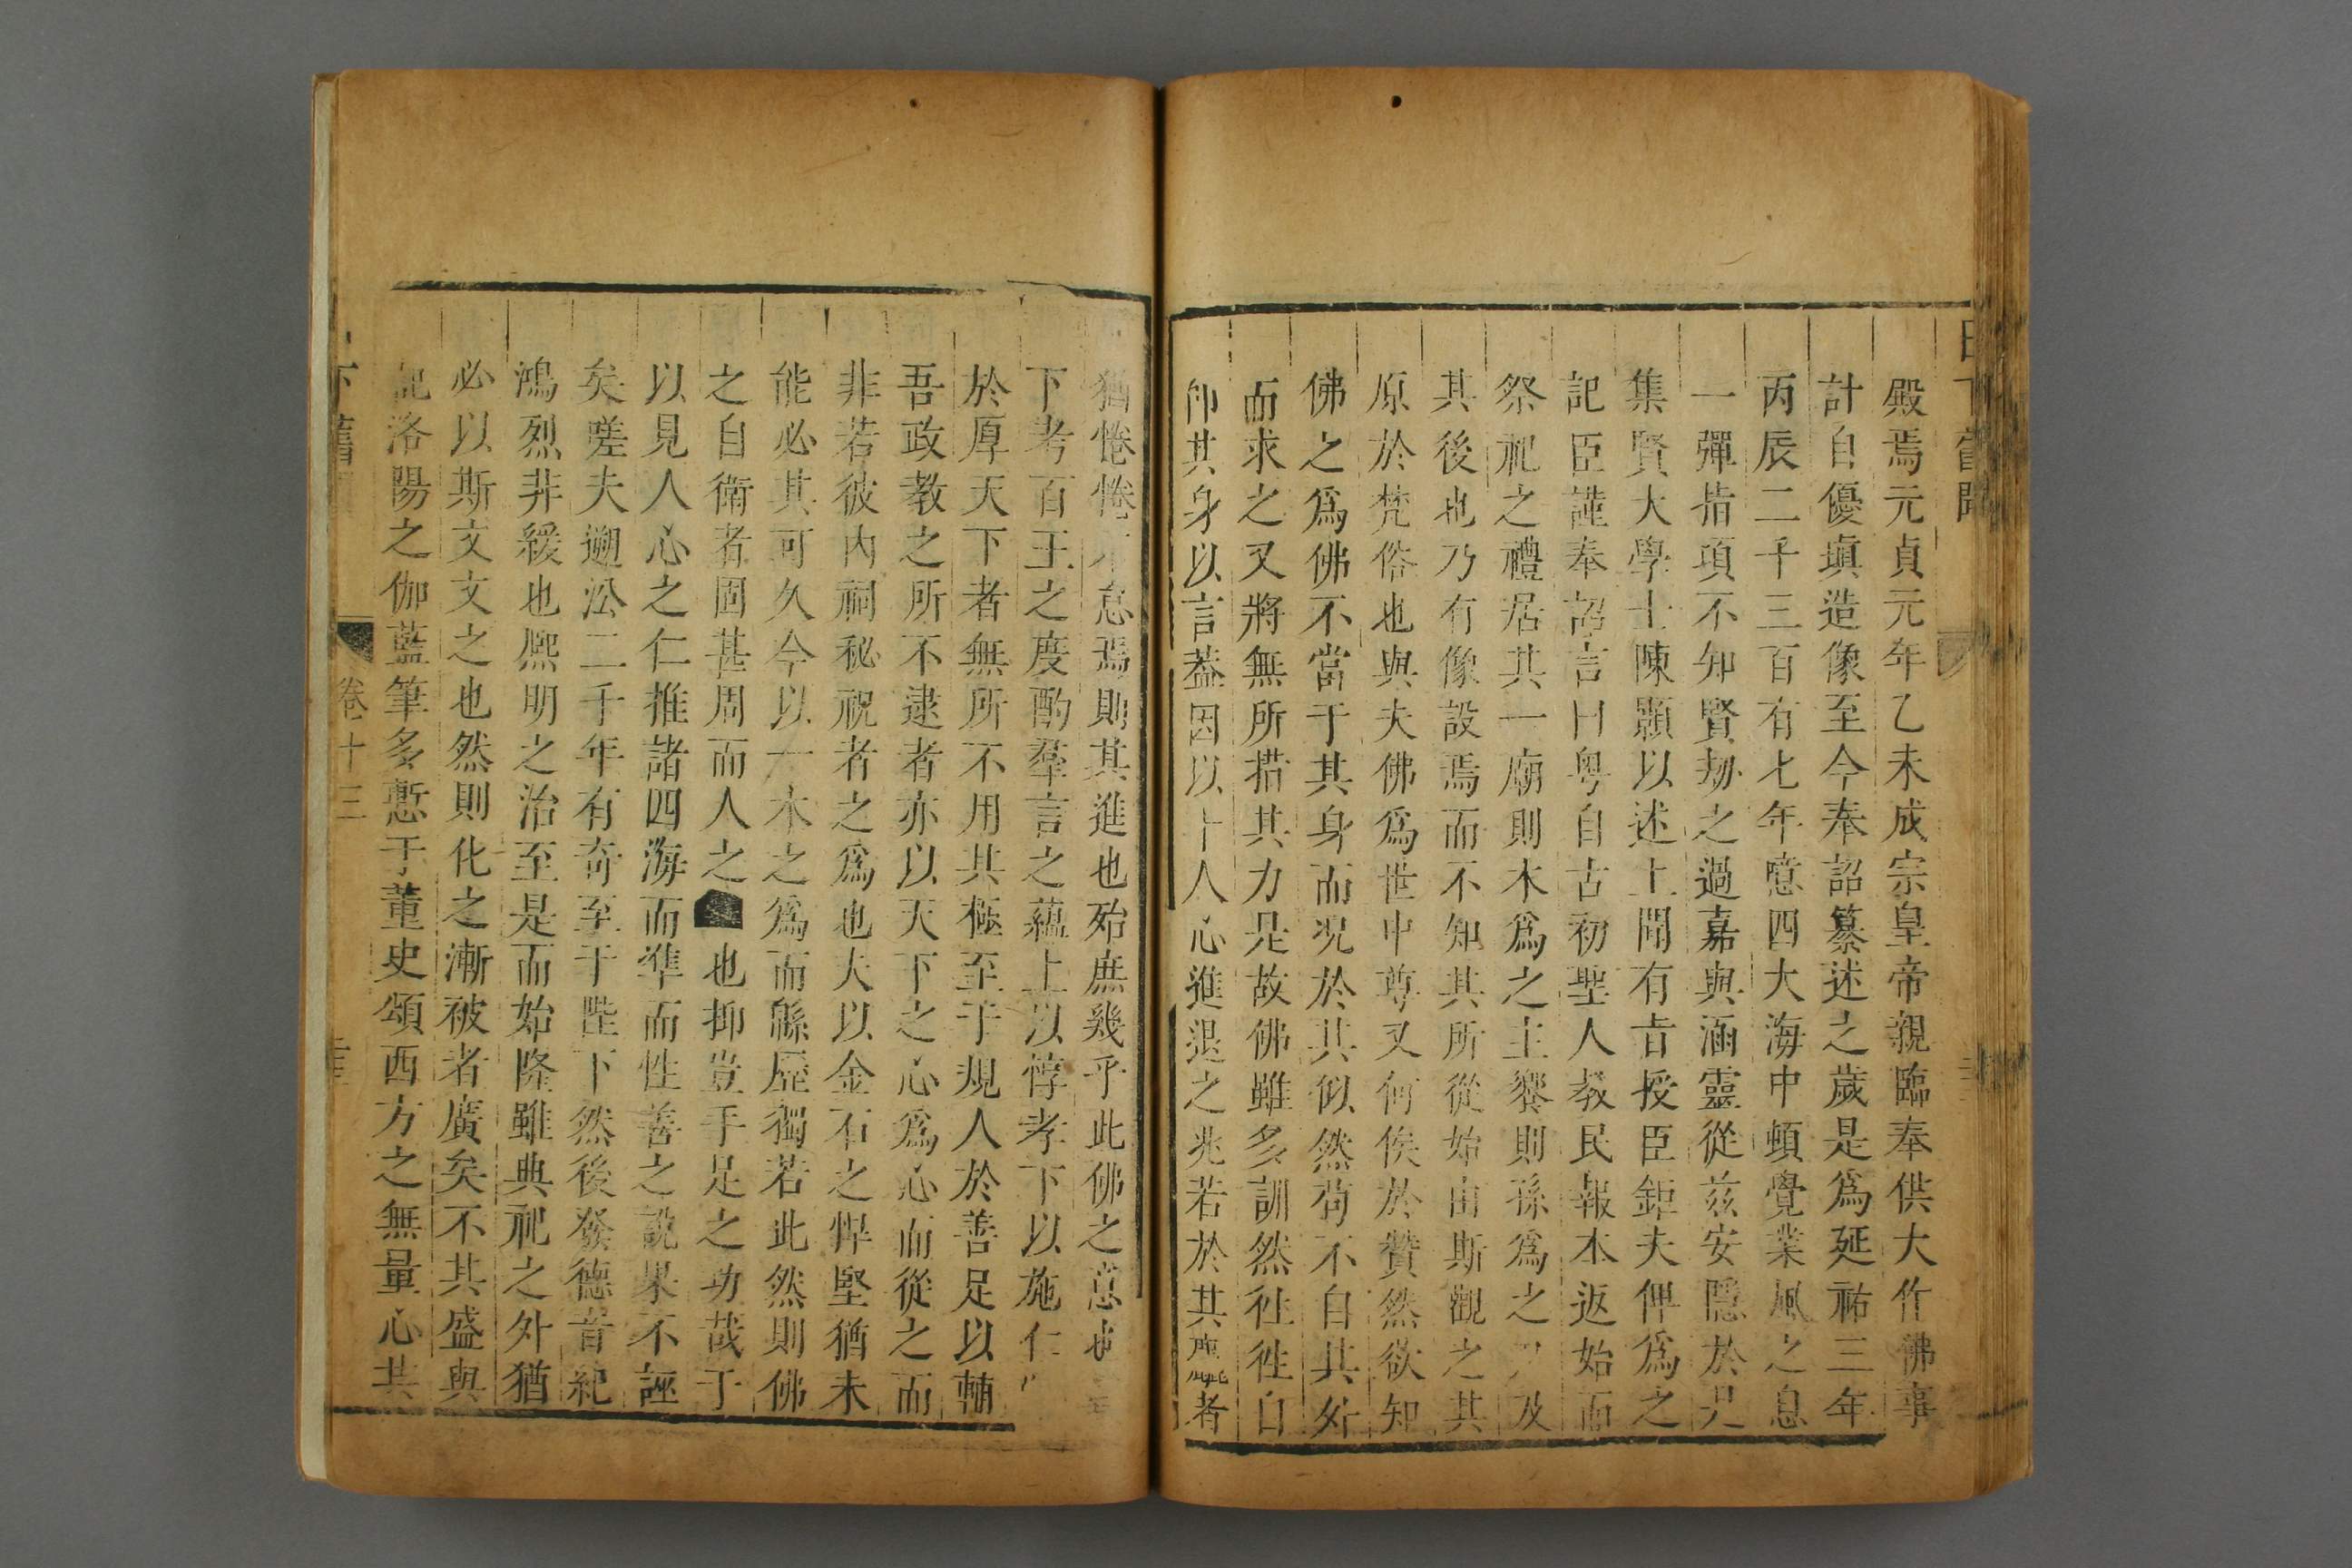 日下舊聞
殿焉元元貞元年乙未成宗皇帝親臨奉供大作佛事
計自優塡造像至今奉詔纂述之歲是爲延祐三年
丙辰二千三百有七年噫四大海中頓覺業風之息
一彈指項不知賢劫之過嘉與涵靈從兹安隱於是
集賢大學士陳顥以述上聞有㫖授臣鉅夫俾爲之
記臣謹奉詔言曰粤自古初聖人教民報本返始而
祭祀之禮居其一廟則木爲之主饗則孫爲之尸及
其後也乃有像設焉而不知其所從始由斯觀之其
原於梵俗也與夫佛爲世中尊又何俟於贊然欲知
佛之爲佛不當于其身而况於其似然苟不自其外
而求之又將無所措其力是故佛雖多訓然徃徃自
卽其身以言葢因以十人心進退之兆若於其 者
猶惓惓不怠焉則其進也殆庶幾乎此佛之意也
下考百王之度酌羣言之蘊上以惇孝下以施仁
於厚天下者無所不用其極至于規人於善足以輔
吾政教之所不逮者亦以天下之心爲心而從之而
非若彼内祠秘祝者之爲也夫以金石之悍堅猶未
能必其可久今以一木之爲而緜歷獨若此然則佛
之自衛者固甚周而人之 也抑豈手足之功哉于
以見人心之仁推諸四海而準而性善之說果不誣
矣嗟夫遡㳂二千年有奇至于陛下然後發德音紀
鴻烈非緩也熈明之治至是而始隆雖典祀之外猶
必以斯文文之也然則化之漸被者廣矣不其盛與
記洛陽之伽藍筆多慙于董史頌西方之無量心共
下舊
卷十三